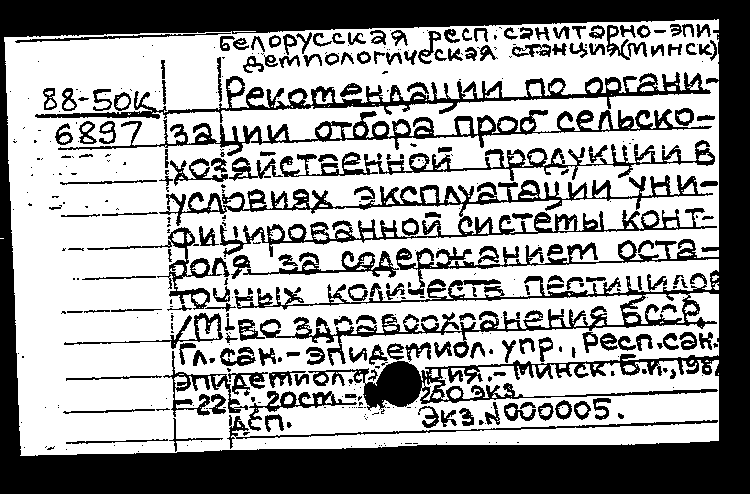 Белорусская респ. санитарно-эпи-
демпологическая станция (Минск)
88-50К
Рекомендации по органи-
6897
зации отбора проб сельско-
хозяйственной продукции в
условиях эксплуатации уни-
фицированной системы конт-
роля за содержанием оста-
точных количеств пестицидов
/М-во здравоохранения БССР.
Гл. сан.-эпидемиол. упр., Респ. сан.-
эпидемиол. станция.-Минск: Б.и., 198
-22с.; 20см.- 250 экз.
ДСП. Экз. N000005.